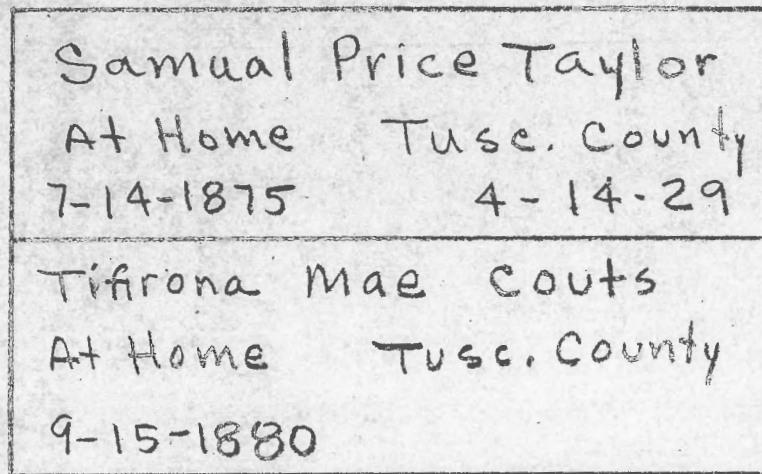 Samual Price Taylor
At Home Tusc. County
7-14-1875 4-14-29
Tifirona Mae Couts
At Home Tusc. County
9-15-1880